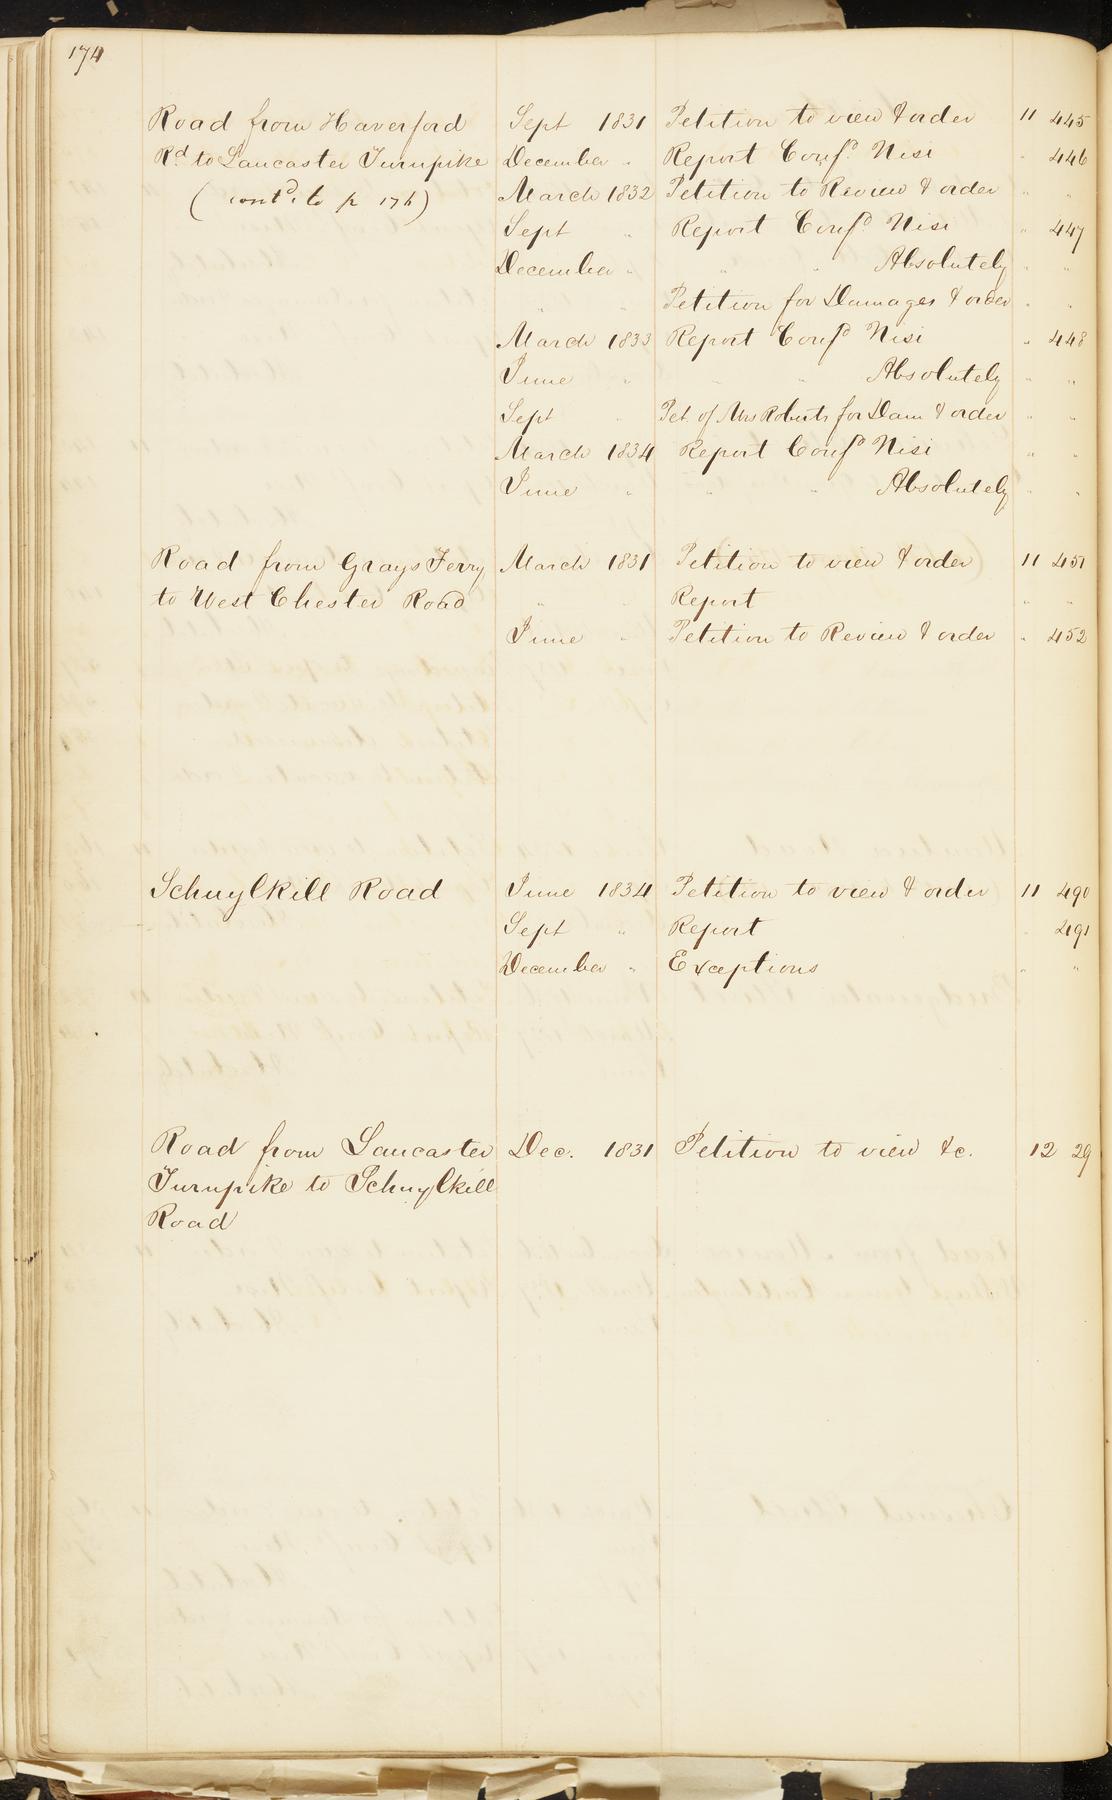 174
Road from Haverford Sept 1831 Petition to view & order 11 445
Rd. to Lancaster Turnpike December " Report Confd. Nisi " 446
(contd. to p 176) March 1832 Petition to Review & order " "
Sept " Report Confd Nisi " 447
December " " " Absolutely " "
" " Petition for Damages & order " "
March 1833 Report Confd Nisi " 448
June " " " Absolutely " "
Sept " Pet. of Mrs Roberts for Dam & order " "
March 1834 Report Confd Nisi " "
June " " " Absolutely " "
Road from Grays Ferry March 1831 Petition to view & order 11 451
to West Chester Road " " Report " "
June " Petition to Review & order " 452
Schuylkill Road June 1834 Petition to view & order 11 490
Sept " Report " 491
December " Exceptions " "
Road from Lancaster Dec. 1831 Petition to view &c. 12 29
Turnpike to Schuylkill
Road